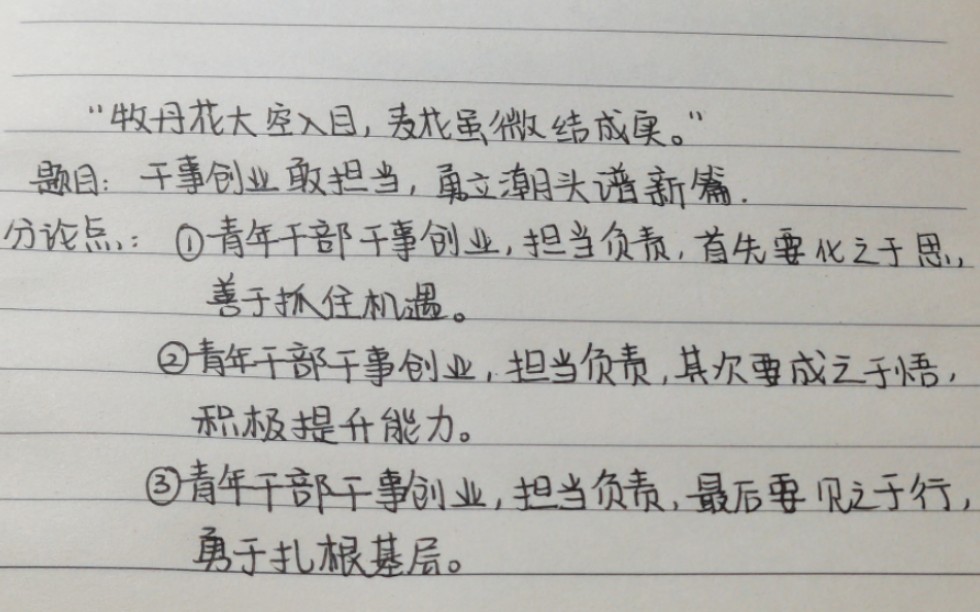 “牧丹花大空入目，麦花虽微结成实。”
题目：干事创业敢担当，勇立潮头谱新篇.
分论点：①青年干部干事创业，担当负责，首先要化之于思，
善于抓住机遇。
②青年干部干事创业，担当负责，其次要成之于悟，
积极提升能力。
③青年干部干事创业，担当负责，最后要见之于行，
勇于扎根基层。